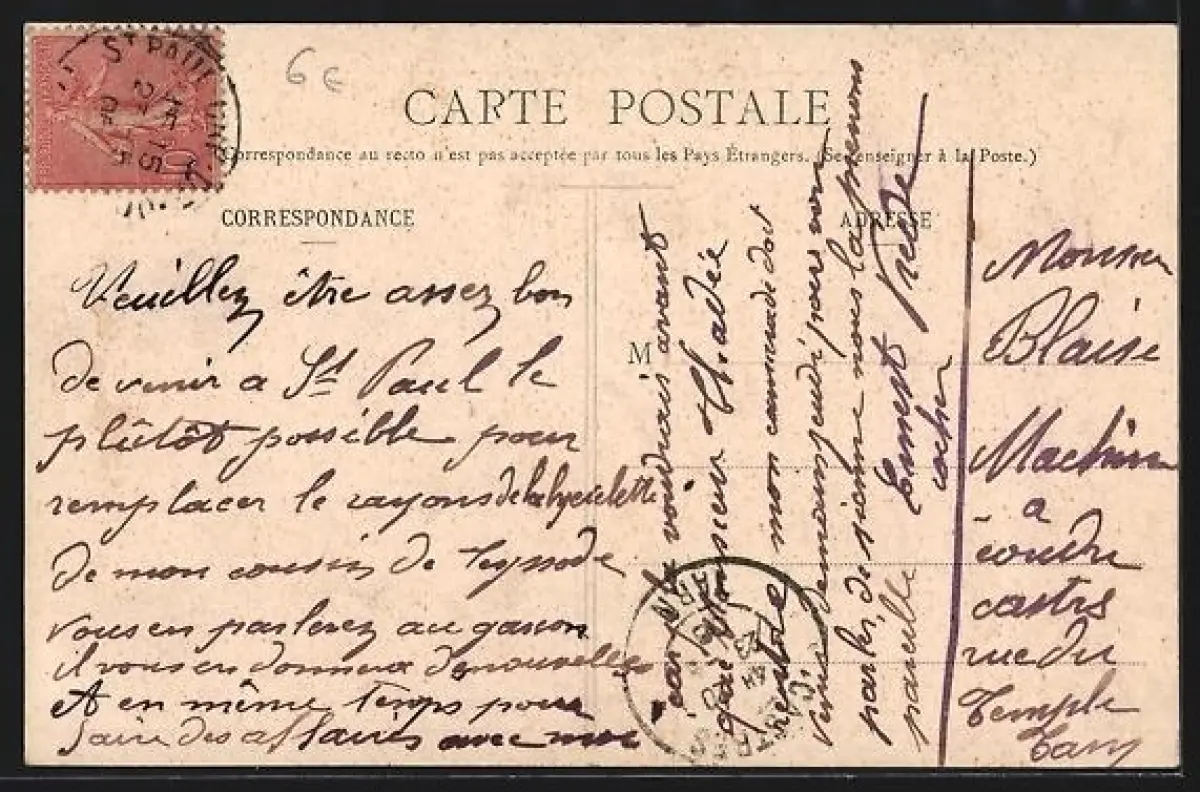 6 €
CARTE POSTALE
Correspondance au recto n'est pas acceptée par tous les Pays Étrangers. (Se renseigner à la Poste.)
CORRESPONDANCE
ADRESSE
M
Veuillez être assez bon
de venir a St Paul le
plûtôt possible pour
remplacer le rayons de la byciclette
de mon cousin de
vous en parlerez au garson
il vous en donnera de nouvelles
At en même temps pour
faire des affaires avec moi
car je voudrais avant
que Monsieur
mon camarade doit
venir demain jeudi pour vous
parler de sienne nous la prenons
pareille
Ernest
cocher
Monsieur
Blaise
Machine
a
coudre
castres
rue du
Temple
Tarn